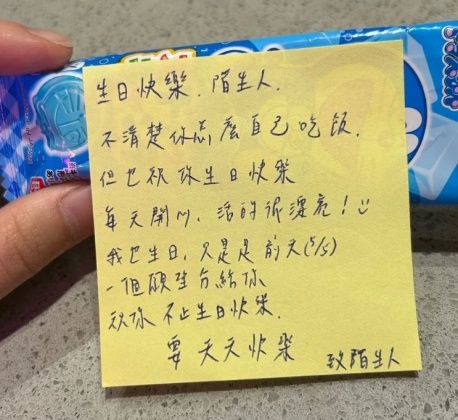 生日快樂、陌生人.
不清楚你為麼自己吃飯.
但也祝你生日快樂
每天開心、活的很漂亮！
我也生日，只是是前天(5/5)
一個願望分給你
祝你不止生日快樂.
要天天快樂
致陌生人